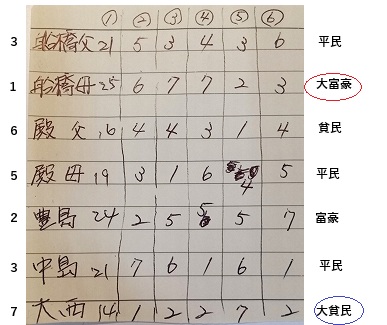 ① ② ③ ④ ⑤ ⑥
3 船橋父 21 5 3 4 3 6 平民
1 船橋母 25 6 7 7 2 3 大富豪
6 殿 父 16 4 4 3 1 4 貧民
5 殿 母 19 3 1 6 4 5 平民
2 豊島 24 2 5 5 5 7 富豪
3 中島 21 7 6 1 6 1 平民
7 大西 14 1 2 2 7 2 大貧民